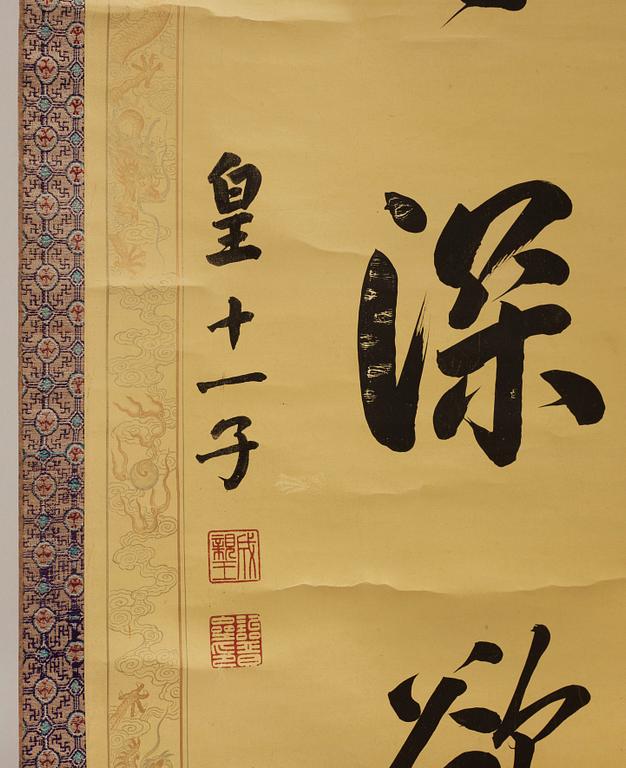 深欲
皇十一子
成親王